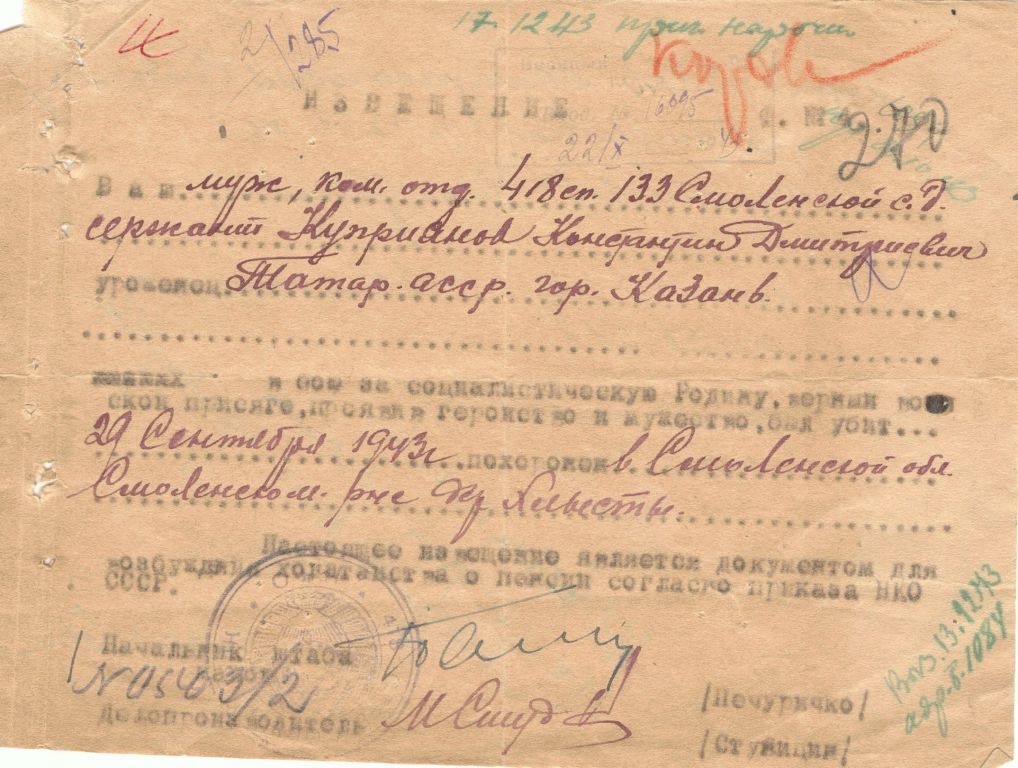 17.12.43
2/285
ИЗВЕЩЕНИЕ
Ф. №4
16095
22/X
270
Ваш муж, ком. отд. 418 сп. 133 Смоленской с.д.
сержант Куприанов Константин Дмитриевич
уроженец Татар. асср. гор. Казань.
в бою за социалистическую Родину, верный воен
ской присяге, проявив геройство и мужество, был убит...
29 Сентября 1943 г. похоронен в Смоленской обл.
Смоленском. р-не
Настоящее извещение является документом для
возбуждения ходатайства о пенсии согласно приказа НКО
СССР.
Начальник штаба
№ 0503/2
Делопроизводитель
/Печуричко/
/Ступицин/
13.12.43
1084